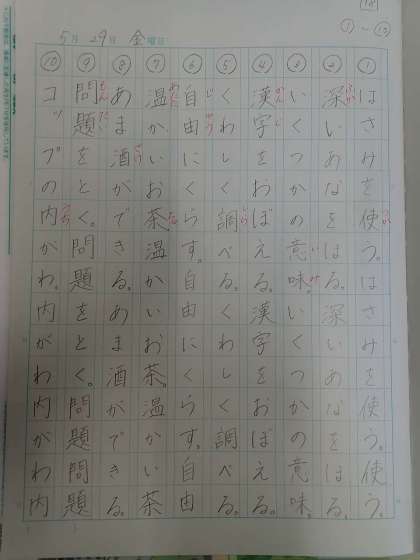 18
①〜⑩
5月29日金曜日
① はさみを使う。はさみを使う。使う。
② 深いあなをほる。深いあなをほる。
③ いくつかの意味。いくつかの意味。
④ 漢字をおぼえる。漢字をおぼえる。
⑤ くわしく調べる。くわしく調べる。
⑥ 自由にくらす。自由にくらす。自由
⑦ 温かいお茶。温かいお茶。温かい茶
⑧ あま酒ができる。あま酒ができる。
⑨ 問題をとく。問題をとく。問題問題
⑩ コップの内がわ。内がわく内がわ内